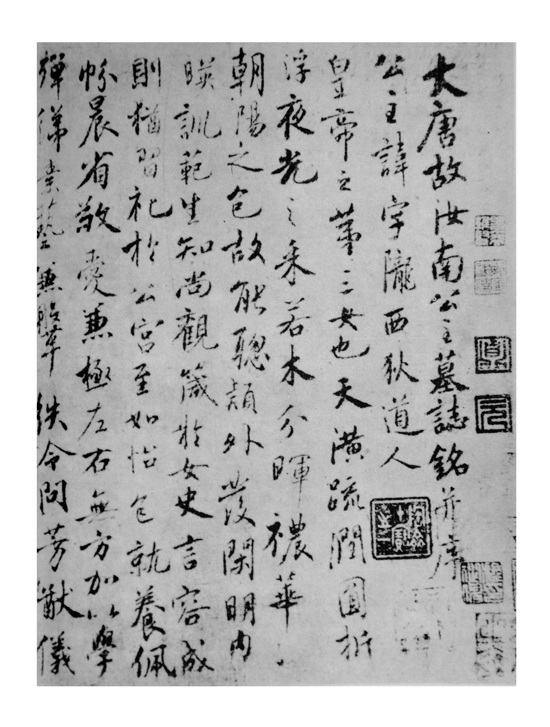 大唐故汝南公主墓誌銘并序
公主諱字隴西狄道人
皇帝之苐三女也天潢疏潤圓折
浮夜光之采若木分暉襛華
朝陽之色故能聰穎外發閑明内
暎訓範生知尚觀箴於女史言容成
則猶習礼於公宮至如怡色就養佩
帉晨省敬愛兼極左右無方加以學
殫綈素藝兼紩令問芳猷儀